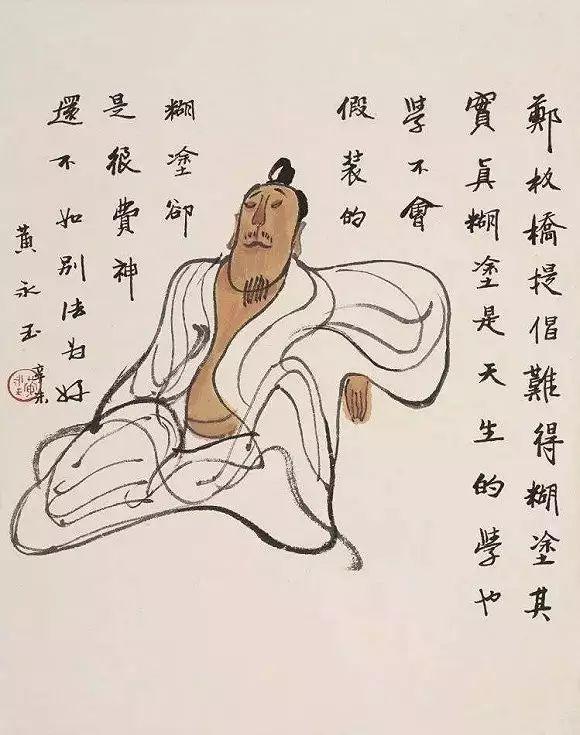 鄭板橋提倡難得糊塗其
實真糊塗是天生的學也
學不會
假裝的
糊塗卻
是很費神
還不如別法为好
黃永玉
辛未